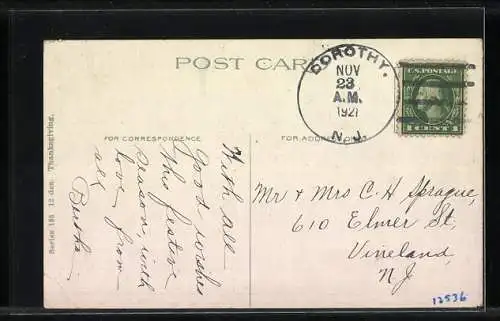 POST CARD
DOROTHY.
NOV
23
A.M.
1921
N.J.
U.S. POSTAGE
1 CENT 1
FOR CORRESPONDENCE
FOR ADDRESS ONLY
Series 185 12 des. Thanksgiving.
With all
good wishes
this festive
season, with
love from
all
Bertha
Mr & Mrs C. H Sprague,
610 Elmer St,
Vineland,
N.J.
12536